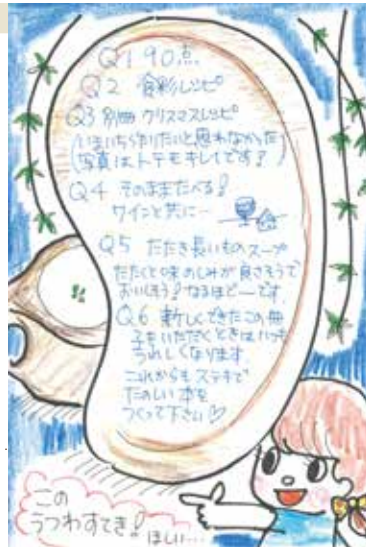 Q1 90点
Q2 食彩レシピ
Q3 別冊クリスマスレシピ
(いまいち作りたいと思わなかった)
(写真はトテモキレイです!)
Q4 そのままたべる!
ワインと共に…
Q5 たたき長いものスープ
たたくと味のしみが良さそうで
おいしそう!なるほどーです。
Q6 新しくできたこの冊
子をいただくときはいつも
うれしくなります。
これからもステキで
たのしい本を
つくって下さい♡
この
うつわすてき!
ほしい…